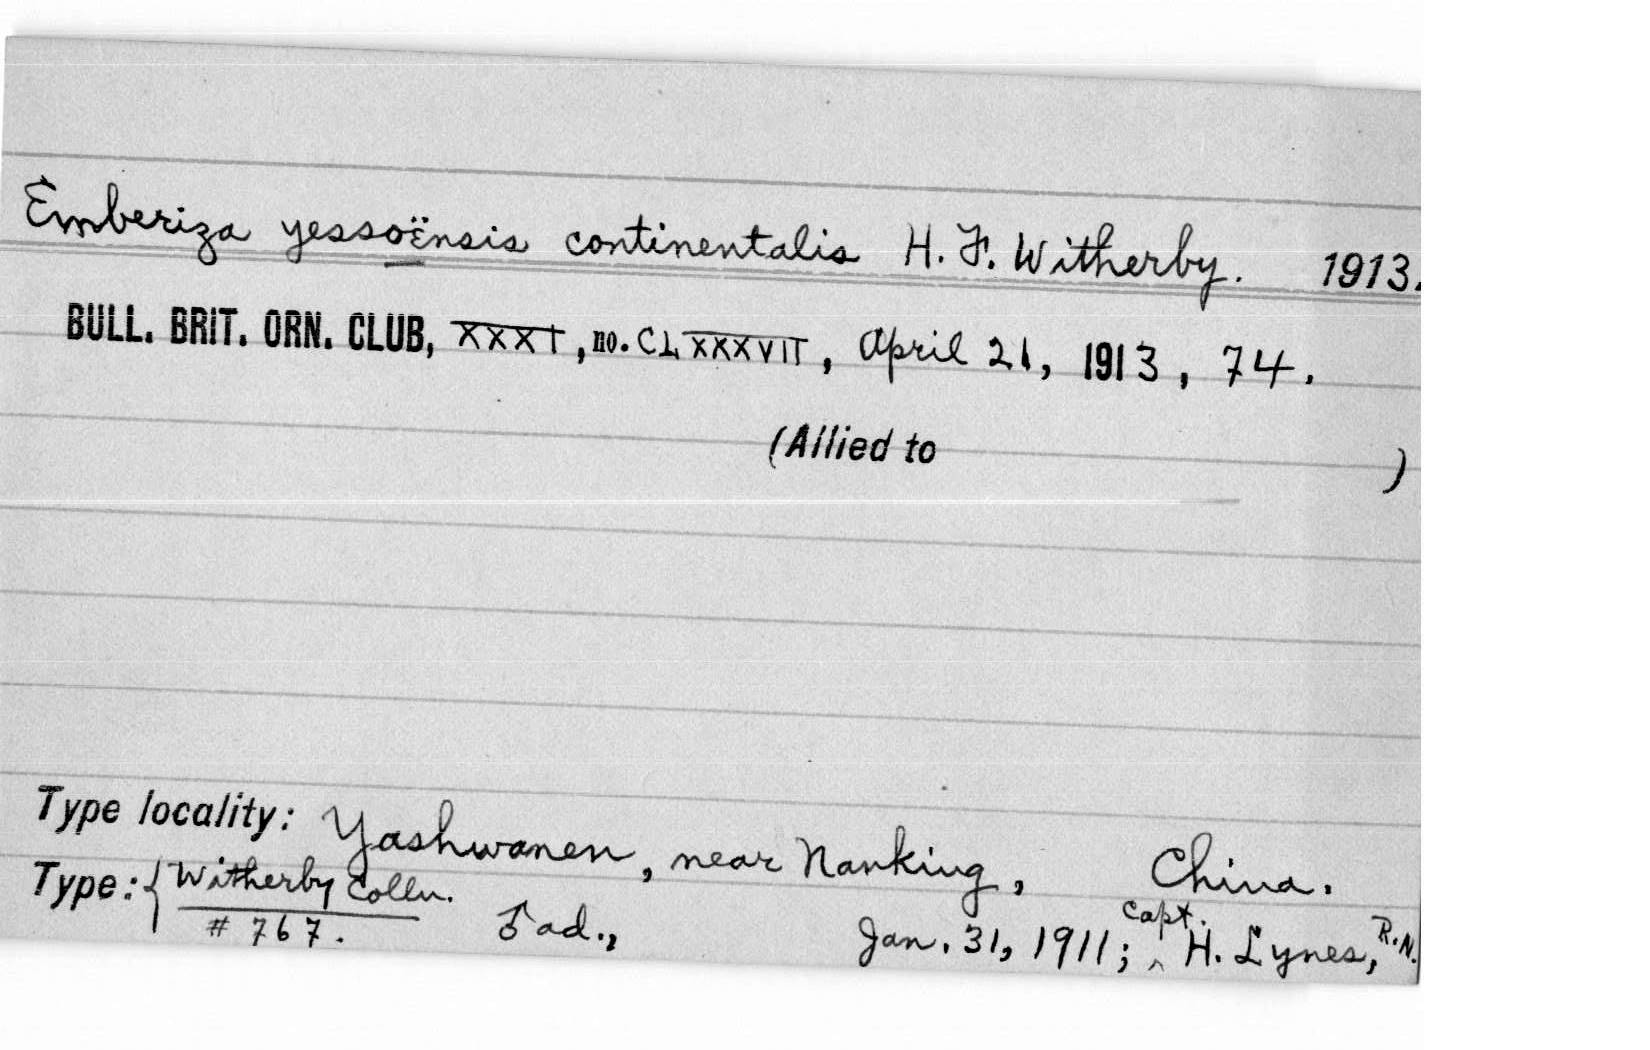 Emberiza yessoënsis continentalis H. F. Witherby. 1913.
BULL. BRIT. ORN. CLUB, XXXI, no. CLXXXVII, April 21, 1913, 74.
(Allied to )
Type locality: Yashwanen, near Nanking, China.
Type: { Witherby Colln. # 767. ♂ ad., Jan. 31, 1911; Capt. H. Lynes, R.N.